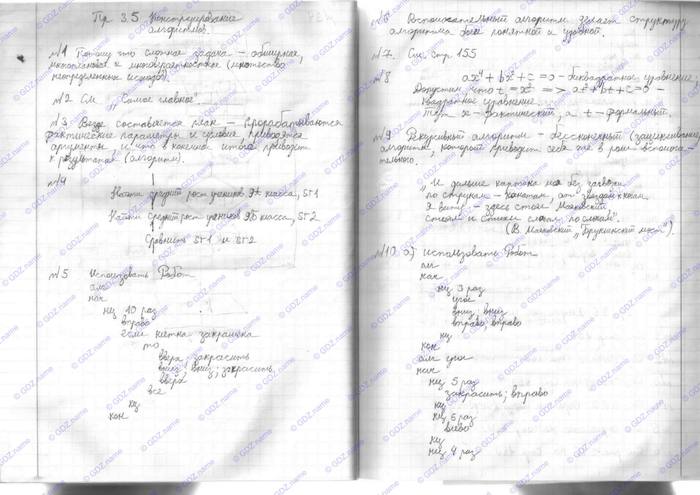 Пр 3.5 Конструирование
алгоритмов.
№1 Потому что сложная задача – обширная,
(множество
неопределенных исходов).
№2 См. „Самое главное".
№3 Везде составляется план – прорабатываются
фактические параметры и условие приводятся
аргументы и что в конечном итоге приводит
к результатам (алгоритм).
№4
Найти средний рост учеников 9А класса, SГ1
Найти средний рост учеников 9Б класса, SГ2
Сравнить SГ1 и SГ2
№5 Использовать Робот
алг
нач
нц 10 раз
вправо
если клетка закрашена
то
вверх закрасить
вниз; вниз; закрасить
вверх
все
кц
кон
№6 Вспомогательный алгоритм делает структуру
алгоритма более понятной и удобной.
№7. См. стр. 155
№8 ax⁴ + bx² + c = 0 – биквадратное уравнение
Допустим, что t = x² => at² + bt + c = 0 –
квадратное уравнение.
Тут x – фактический, а t – формальный.
№9 Рекурсивный алгоритм – бесконечный
алгоритм, который приводит себя же в роли вспомога-
тельного.
„И дальше картина моя без загвоздки
по струнам – канатам, аж звездам к ногам.
Я вижу – здесь стоял Маяковский
стоял и стихи слагал по слогам".
(В. Маяковский „Бруклинский мост").
№10 а) использовать Робот
алг
нач
нц 3 раз
угол
вниз; вниз
вправо; вправо
кц
кон
алг угол
нач
нц 5 раз
закрасить; вправо
кц
нц 5 раз
влево
кц
нц 4 раз
© GDZ.name